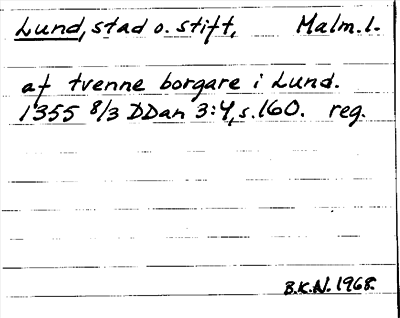 Lund, stad o. stift, Malm.l.
af tvenne borgare i Lund.
1355 8/3 DDan 3:4, s.160. reg.
B.K.N. 1968.